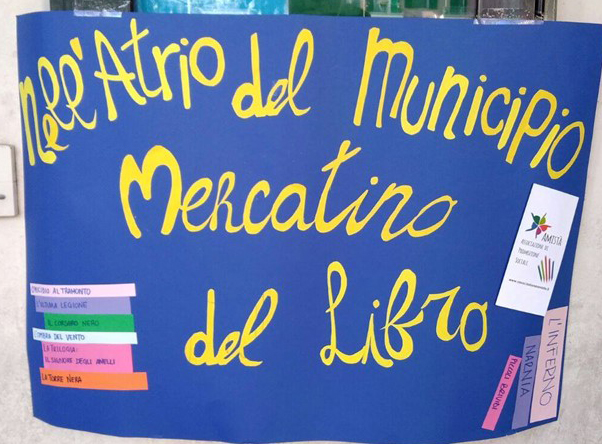 Nell'Atrio del Municipio
Mercatino
del Libro
AMISTÀ
ASSOCIAZIONE DI
PROMOZIONE
SOCIALE
OMICIDIO AL TRAMONTO
L'ULTIMA LEGIONE
IL CORSARO NERO
L'OMBRA DEL VENTO
LA TRILOGIA:
IL SIGNORE DEGLI ANELLI
LA TORRE NERA
L'INFERNO
NARNIA